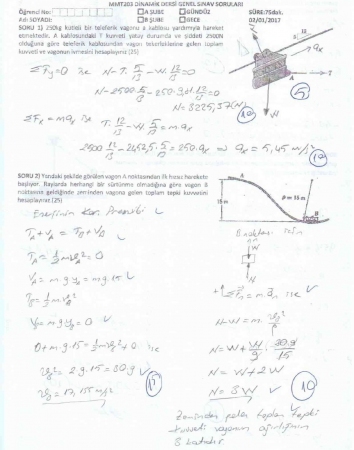 MMT203 DİNAMİK DERSİ GENEL SINAV SORULARI
Öğrenci No: A ŞUBE GÜNDÜZ SÜRE:75dak.
Adı SOYADI: B ŞUBE GECE 02/01/2017
SORU 1) 250kg kütleli bir teleferik vagonu A kablosu yardımıyla hareket
etmektedir. A kablosundaki T kuvveti yatay durumda ve şiddeti 2500N
olduğuna göre teleferik kablosundan vagon tekerleklerine gelen toplam
kuvveti ve vagonun ivmesini hesaplayınız.(25)
ΣFy=0 ise N-T.5/13-W.12/13=0
N-2500.5/13-2452,5.12/13=0
N=3225,57(N)
10
ΣFx=max ise T.12/13-W.5/13=m.ax
2500.12/13-2452,5.5/13=250.ax ⇒ ax=5,45 m/s²
SORU 2) Yandaki şekilde görülen vagon A noktasından ilk hızsız harekete
başlıyor. Raylarda herhangi bir sürtünme olmadığına göre vagon B
noktasına geldiğinde zeminden vagona gelen toplam tepki kuvvetini
hesaplayınız.(25)
A
15 m
ρ = 15 m
B
Enerjinin Kor. Prensibi
TA+VA=TB+VB
TA=1/2 m vA²=0
VA=m.g.yA=m.g.15
TB=1/2 m.vB²
VB=m.g.yB=0
0+m.g.15=1/2 m.vB²+0 ise
vB²=2.g.15=30g
vB=17,15 m/s
B noktası için
N
W
ΣFn=m.an ise
N-W=m.vB²/ρ
N=W+W/g.30.g/15
N=W+2W
N=3W
10
Zeminden gelen toplam tepki
kuvveti vagonun ağırlığının
3 katıdır.